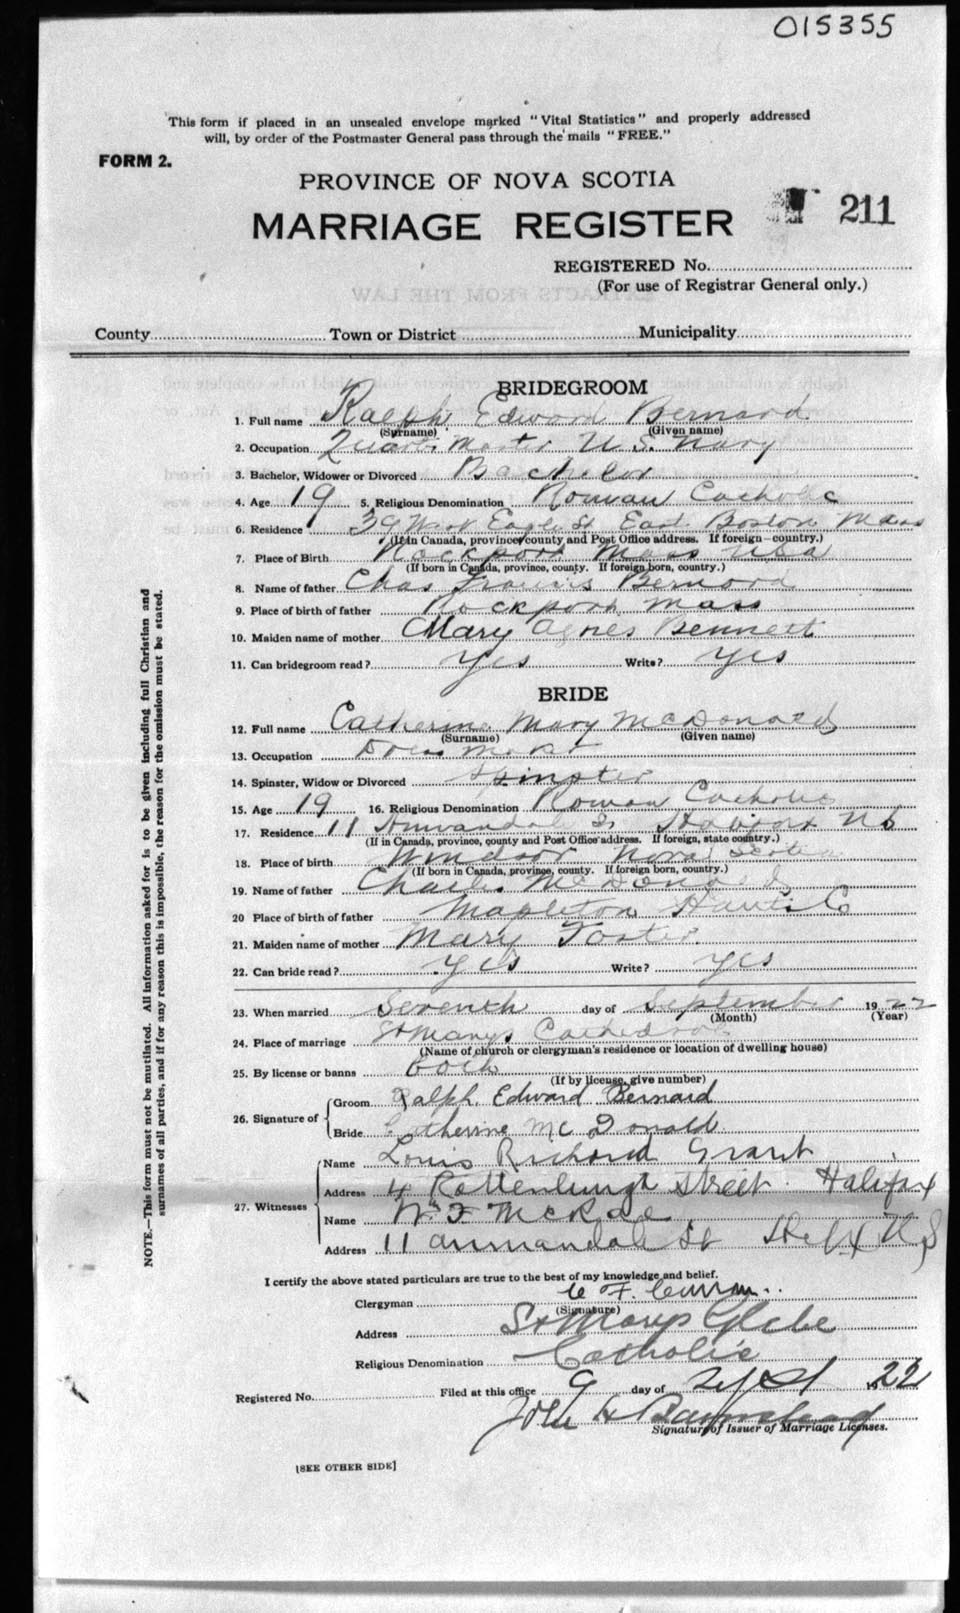 015355
This form if placed in an unsealed envelope marked "Vital Statistics" and properly addressed
will, by order of the Postmaster General pass through the mails "FREE."
FORM 2.
PROVINCE OF NOVA SCOTIA
MARRIAGE REGISTER 211
REGISTERED No.
(For use of Registrar General only.)
County Town or District Municipality
BRIDEGROOM
1. Full name Ralph Edward Bernard
(Surname) (Given name)
2. Occupation Quarter Master U.S. Navy
3. Bachelor, Widower or Divorced Bachelor
4. Age 19 5. Religious Denomination Roman Catholic
6. Residence 39 West Eagle St East Boston Mass
(If in Canada, province, county and Post Office address. If foreign—country.)
7. Place of Birth Rockport Mass USA
(If born in Canada, province, county. If foreign born, country.)
8. Name of father Chas Francis Bernard
9. Place of birth of father Rockport Mass
10. Maiden name of mother Mary Agnes Bennett
11. Can bridegroom read? Yes Write? Yes
BRIDE
12. Full name Catherine Mary McDonald
(Surname) (Given name)
13. Occupation Dress Maker
14. Spinster, Widow or Divorced Spinster
15. Age 19 16. Religious Denomination Roman Catholic
17. Residence 11 Annandale St Halifax NS
(If in Canada, province, county and Post Office address. If foreign, state country.)
18. Place of birth Windsor Nova Scotia
(If born in Canada, province, county. If foreign born, country.)
19. Name of father Charles McDonald
20 Place of birth of father Mapleton Hants Co
21. Maiden name of mother Mary Foster.
22. Can bride read? Yes Write? Yes
23. When married Seventh day of September 1922
(Month) (Year)
24. Place of marriage St Marys Cathedral
(Name of church or clergyman's residence or location of dwelling house)
25. By license or banns Both
(If by license, give number)
26. Signature of Groom Ralph Edward Bernard
Bride Catherine McDonald
27. Witnesses Name Louis Richard Grant
Address 4 Rottenburgh Street. Halifax
Name W. F. McRae
Address 11 Annandale St Hlfx N S
I certify the above stated particulars are true to the best of my knowledge and belief.
Clergyman C. F. Curran
(Signature)
Address St Marys Glebe
Religious Denomination Catholic
Registered No. Filed at this office 9 day of Sept 1922
John H Barnstead
Signature of Issuer of Marriage Licenses.
[SEE OTHER SIDE]
NOTE.—This form must not be mutilated. All information asked for is to be given including full Christian and
surnames of all parties, and if for any reason this is impossible, the reason for the omission must be stated.